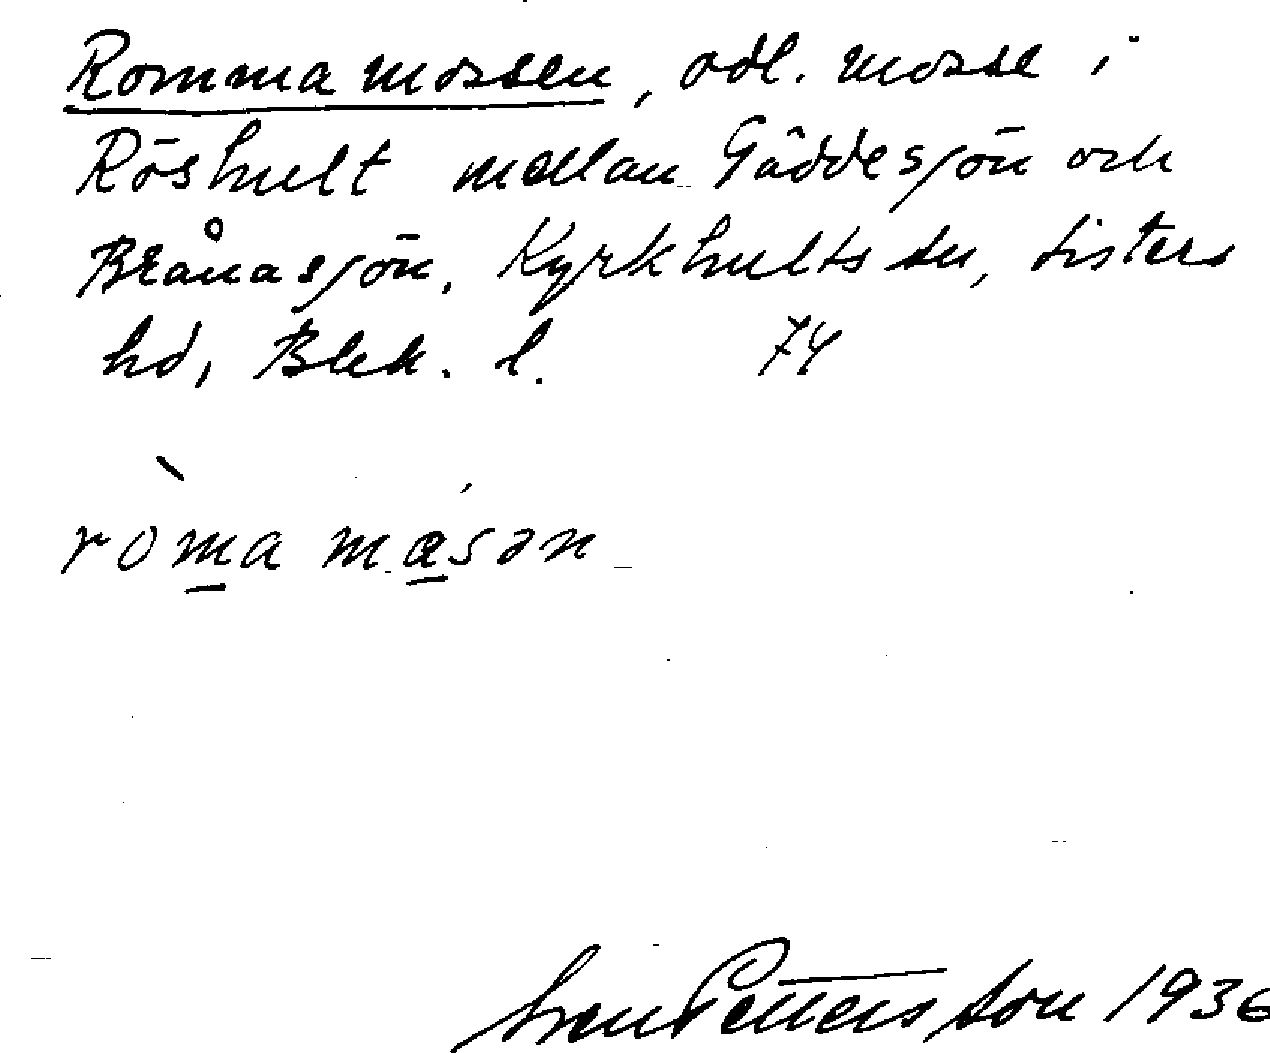 Rommamossen, odl. mosse i
Röshult mellan Gäddesjön och
Brånasjön, Kyrkhults sn, Listers
hd, Blek. l. 74
ròma mæsən
Sven Pettersson 1936